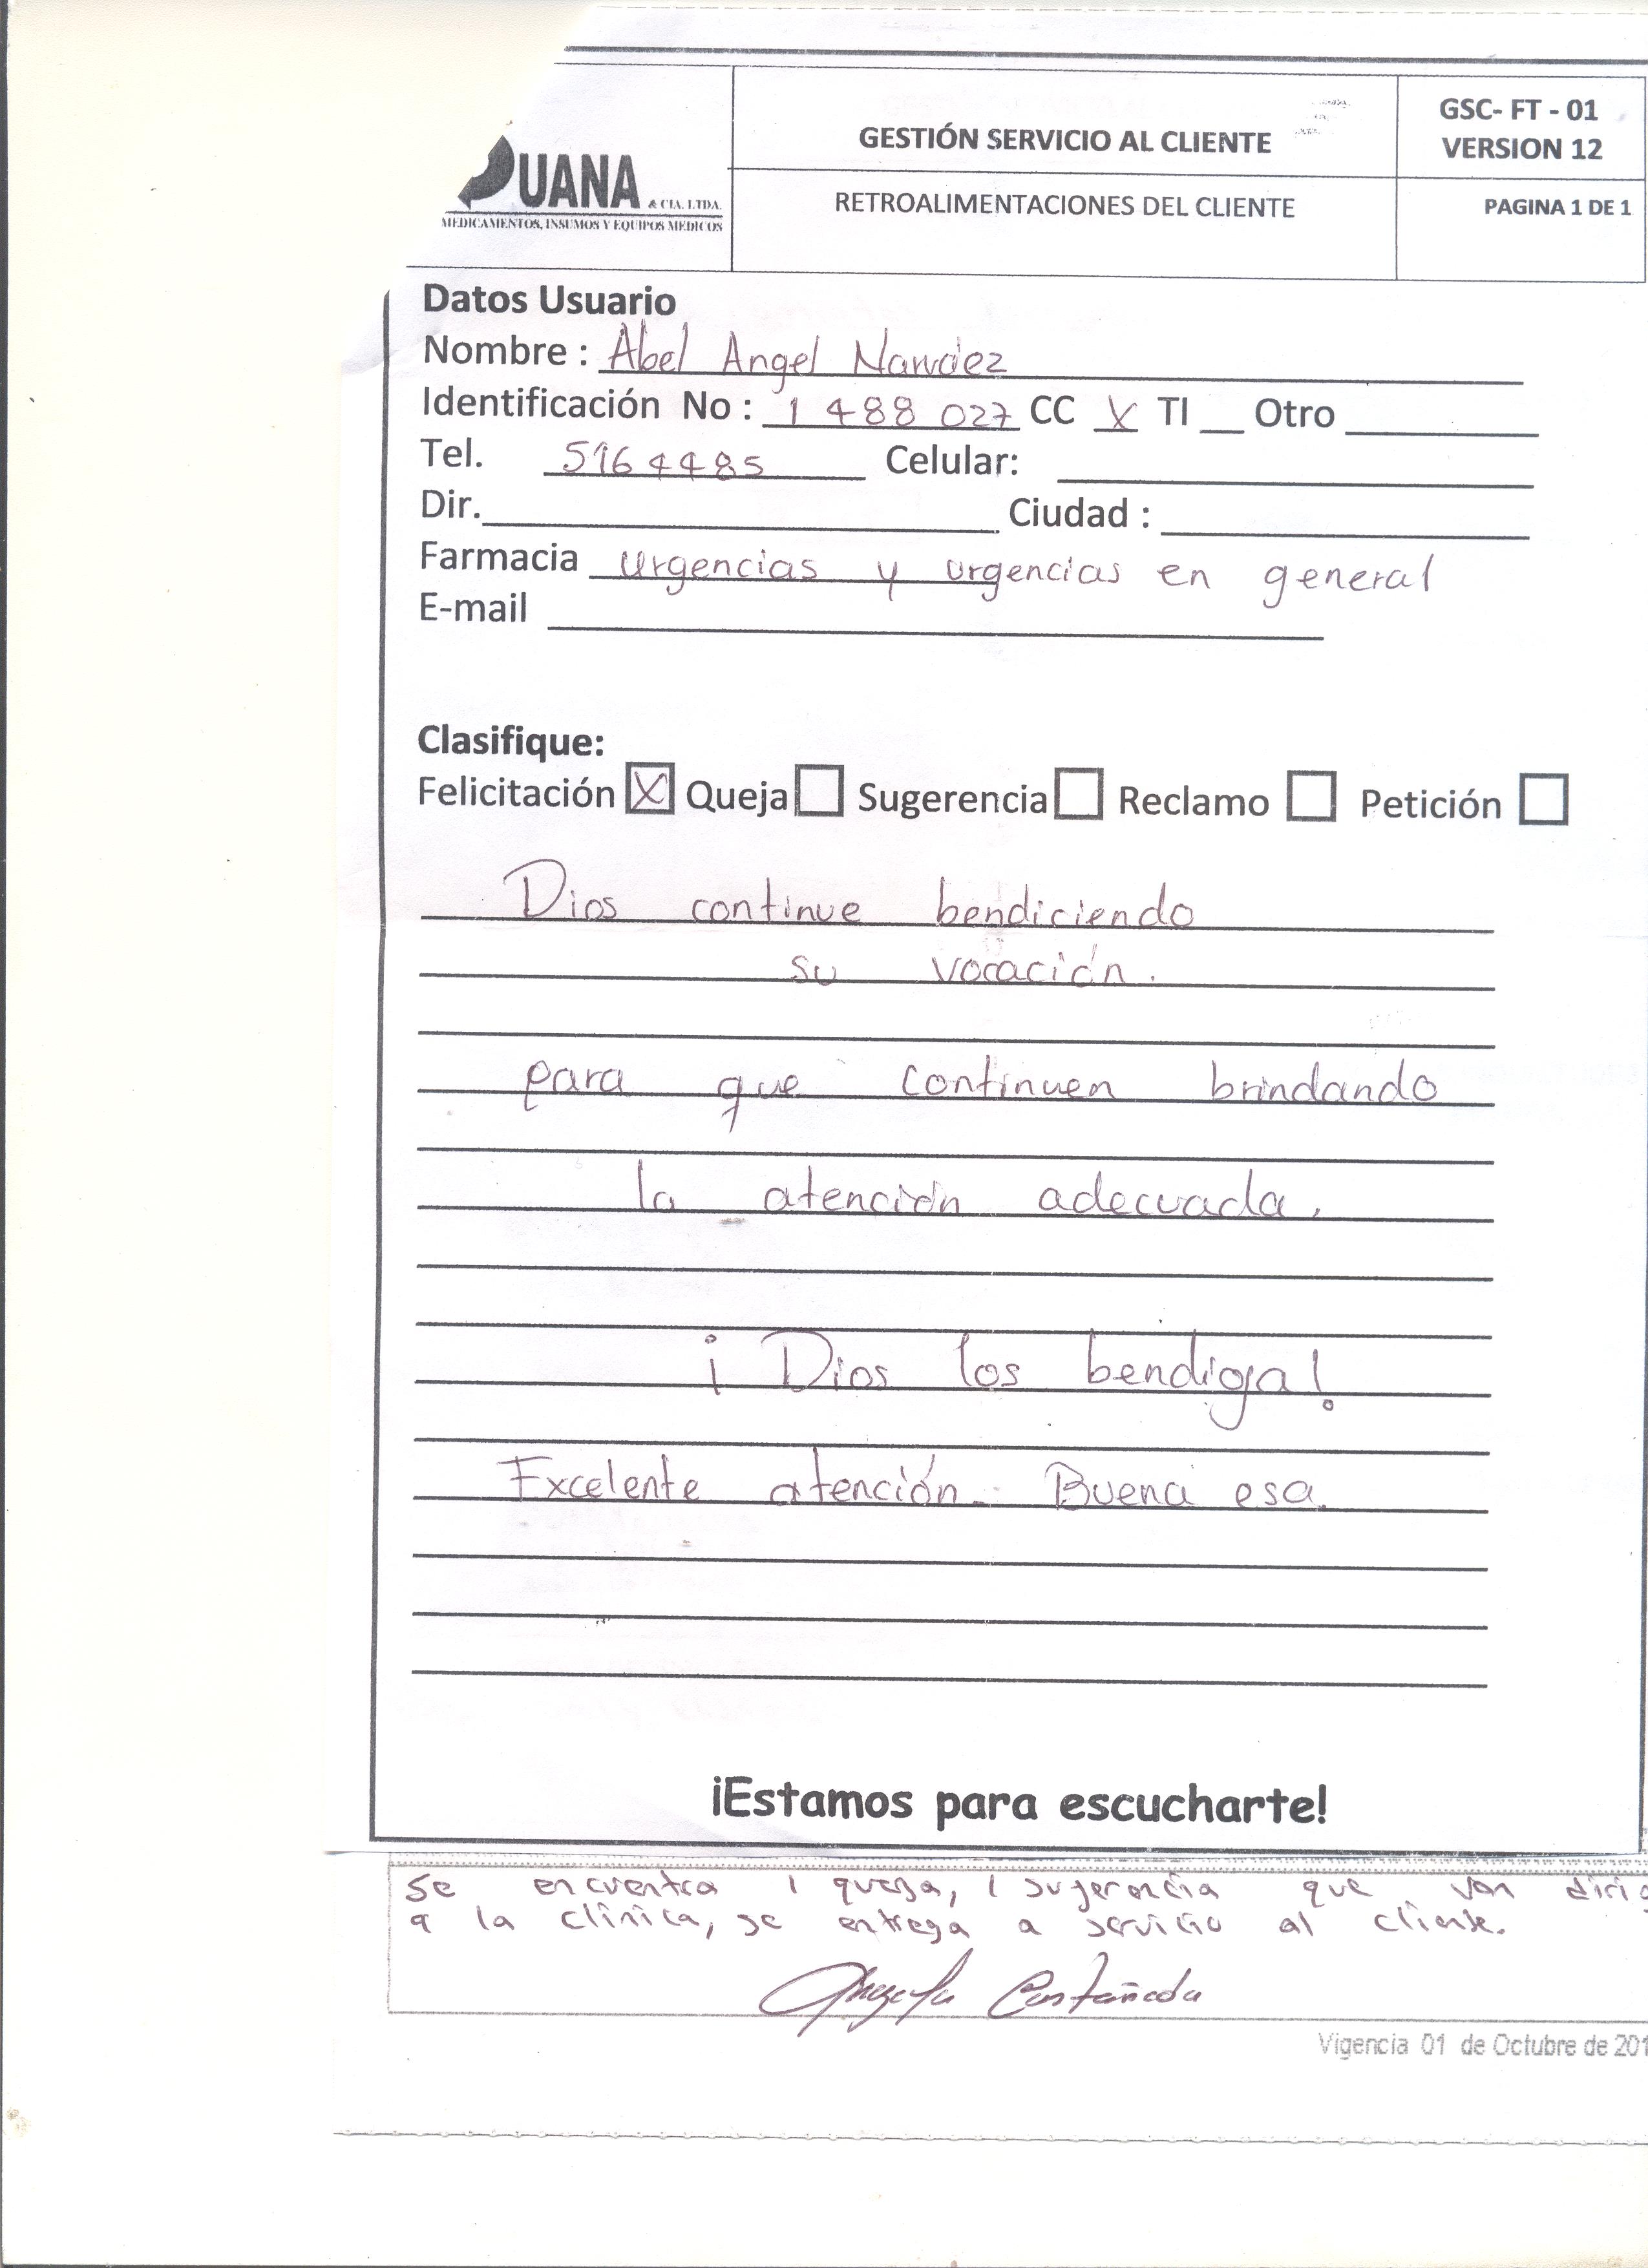 UANA & CIA. LTDA.
MEDICAMENTOS, INSUMOS Y EQUIPOS MEDICOS
GESTIÓN SERVICIO AL CLIENTE
RETROALIMENTACIONES DEL CLIENTE
GSC- FT - 01
VERSION 12
PAGINA 1 DE 1
Datos Usuario
Nombre : Abel Angel
Identificación No : 1 488 027 CC X TI __ Otro
Tel. 5164485 Celular:
Dir. Ciudad :
Farmacia urgencias y urgencias en general
E-mail
Clasifique:
Felicitación X Queja Sugerencia Reclamo Petición
Dios continue bendiciendo
su vocación.
para que continuen brindando
la atención adecuada.
¡Dios los bendiga!
Excelente atención. Buena esa.
¡Estamos para escucharte!
Se encuentra 1 queja, 1 sugerencia que van
a la clínica, se entrega a servicio al cliente.
Angela Castañeda
Vigencia 01 de Octubre de 201